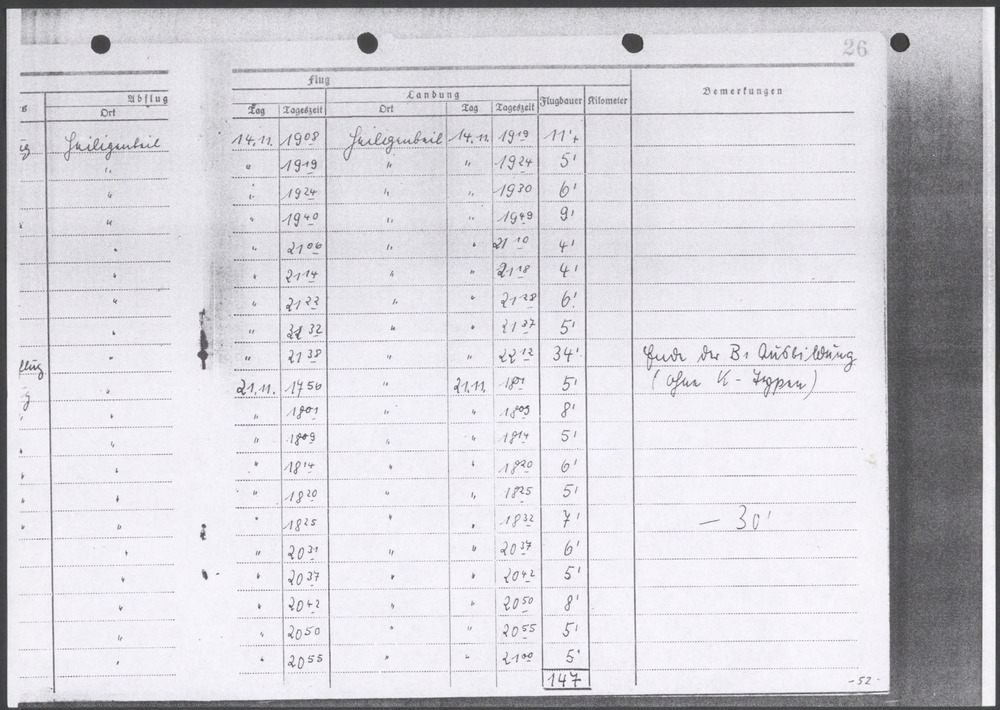 26
Flug
Abflug Landung Flugdauer Kilometer Bemerkungen
Ort Tag Tageszeit Ort Tag Tageszeit
Heiligenbeil 14.11. 19 08 Heiligenbeil 14.11. 19 19 11'
" " 19 19 " " 19 24 5'
" " 19 24 " " 19 30 6'
" " 19 40 " " 19 49 9'
" " 21 06 " " 21 10 4'
" " 21 14 " " 21 18 4'
" " 21 22 " " 21 28 6'
" " 32 " " 21 37 5'
" " 21 38 " " 22 12 34' Ende der B1 Ausbildung
" 21.11. 17 56 " 21.11. 18 01 5' (ohne K-Typen)
" " 18 01 " " 18 09 8'
" " 18 09 " " 18 14 5'
" " 18 14 " " 18 20 6'
" " 18 20 " " 18 25 5'
" " 18 25 " " 18 32 7' – 30'
" " 20 31 " " 20 37 6'
" " 20 37 " " 20 42 5'
" " 20 42 " " 20 50 8'
" " 20 50 " " 20 55 5'
" " 20 55 " " 21 00 5'
147
- 52 -